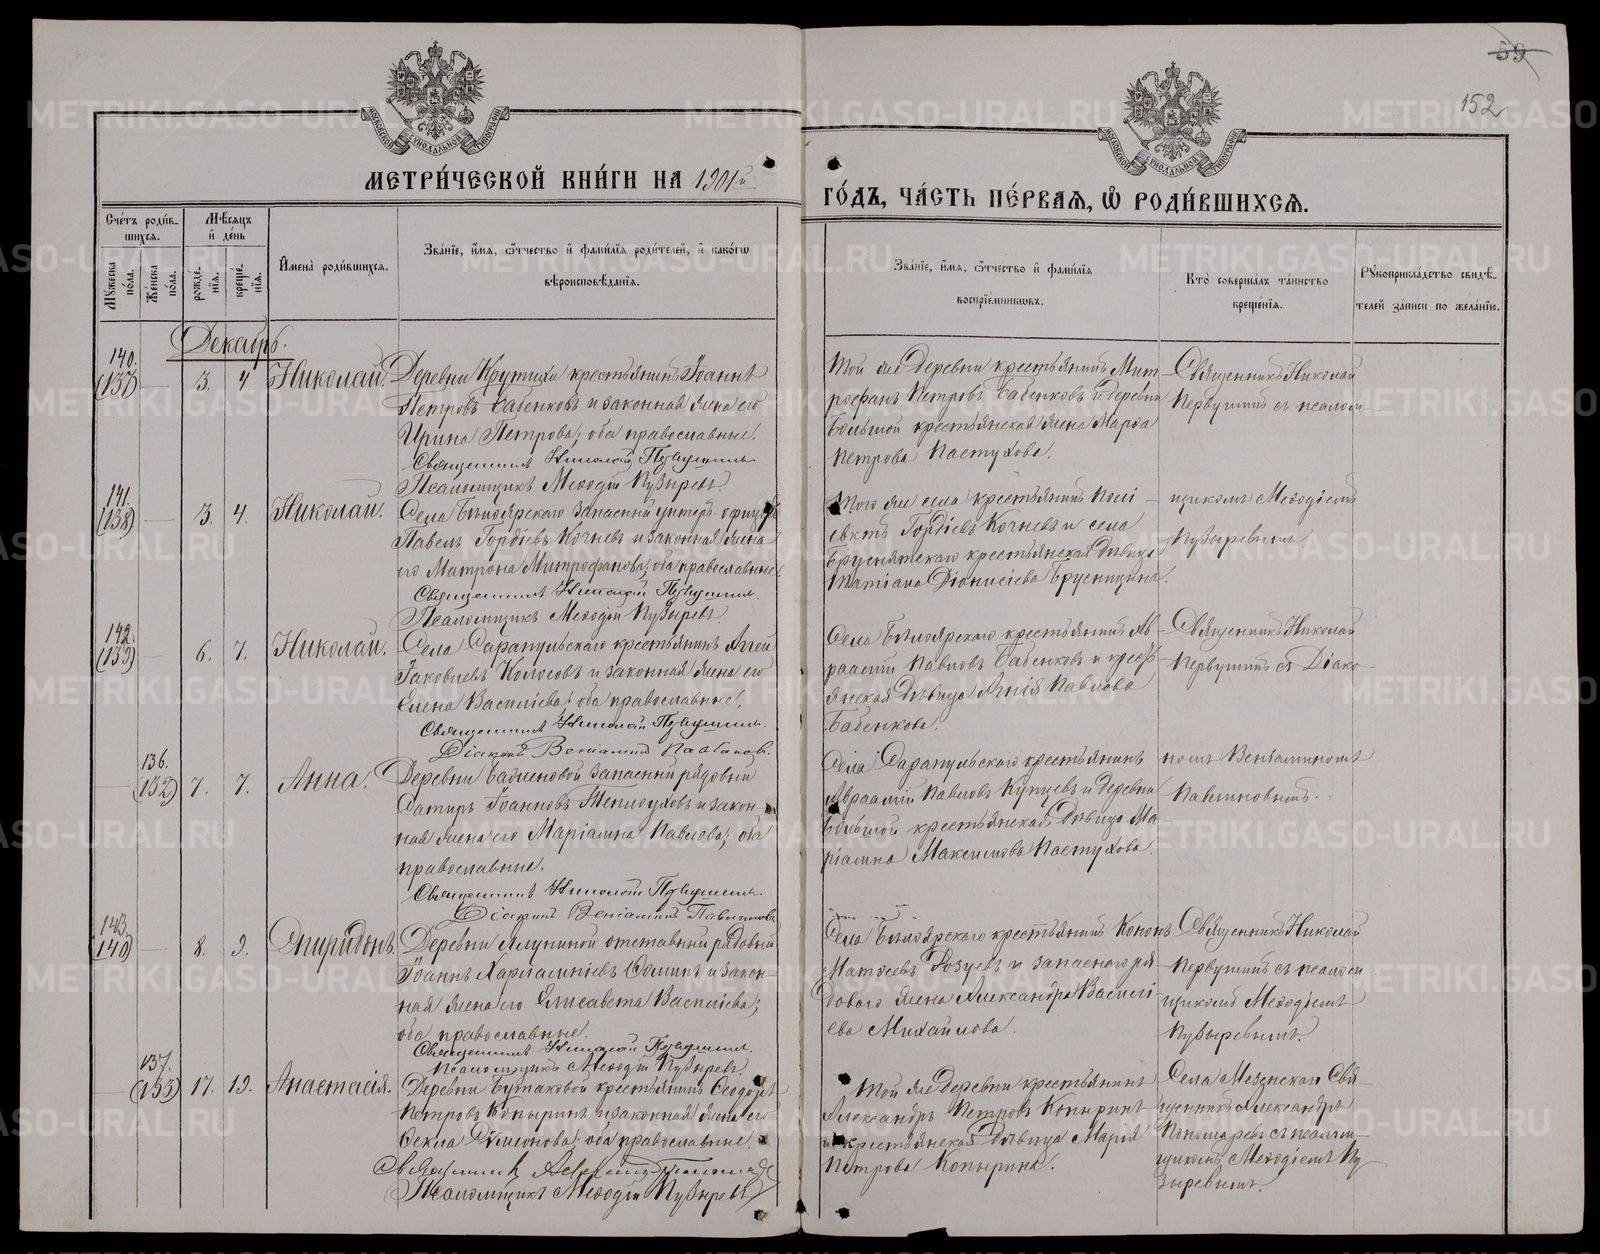 59
152
МЕТРИ́ЧЕСКОЙ КНИ́ГИ НА 1901й
ГО́ДЪ, ЧА́СТЬ ПЕ́РВАѦ, Ѡ҆ РОДИ́ВШИХСѦ.
МОСКОВСКОЙ СУНОДАЛЬНОЙ ТИПОГРАФІИ
МОСКОВСКОЙ СУНОДАЛЬНОЙ ТИПОГРАФІИ
Сче́тъ роди́в-
шихсѧ.
Мѣ́сѧцъ
и҆ де́нь
Мꙋ́жеска по́ла.
Же́нска по́ла.
рожде́-
нїѧ.
креще́-
нїѧ.
И҆мена̀ роди́вшихсѧ.
Зва́нїе, и҆́мѧ, ѻ҆́тчество и҆ фами́лїѧ роди́телей, и҆ како́гѡ
вѣроисповѣ́данїѧ.
Зва́нїе, и҆́мѧ, ѻ҆́тчество и҆ фами́лїѧ
воспрїе́мникѡвъ.
Кто̀ соверша́лъ та́инство
креще́нїѧ.
Рꙋкоприкла́дство свидѣ́-
телей за́писи по жела́нїю.
Декабрь.
140.
(137) 3. 4. Николай.
Деревни Крутихи крестьянинъ Іоаннъ
Петровъ Бабенковъ и законная жена его
Ирина Петрова; оба православные.
Священникъ Николай Первушинъ
Псаломщикъ Меѳодій Пузыревъ.
Той же деревни крестьянинъ Мит-
рофанъ Петровъ Бабенковъ и деревни
Большой крестьянская жена Марѳа
Петрова Пастухова.
Священникъ Николай
Первушинъ съ псалом-
щикомъ Меѳодіемъ
Пузыревымъ
141.
(138) 3. 4. Николай.
Села Бѣлоярского запасный унтеръ-офицеръ
Павелъ Гордіевъ Кочневъ и законная жена
его Матрона Митрофанова; оба православные.
Священникъ Николай Первушинъ.
Псаломщикъ Меѳодій Пузыревъ.
Того же села крестьянинъ Полі-
евктъ Гордіевъ Кочневъ и села
Бруснятского крестьянская дѣвица
Татіана Діонисіева Брусницина.
142.
(139) 6. 7. Николай.
Села Сарапульского крестьянинъ Аггей
Іаковлевъ Колосовъ и законная жена его
Елена Василіева; оба православные.
Священникъ Николай Первушинъ.
Діаконъ Веніаминъ Павлиновъ.
Села Бѣлоярского крестьянинъ Ав-
раамій Павловъ Бабенковъ и кресть-
янская дѣвица Агнія Павлова
Бабенкова.
Священникъ Николай
Первушинъ съ Діако-
номъ Веніаминомъ
Павлиновымъ.
136.
(132) 7. 7. Анна.
запасный рядовый
Сатиръ Іоанновъ Теплоуховъ и закон-
ная жена его Маріамна Павлова; оба
православные.
Священникъ Николай Первушинъ.
Діаконъ Веніаминъ Павлиновъ
Села Сарапульского крестьянинъ
Авраамій Павловъ Купцевъ и деревни
Большой крестьянская дѣвица Ма-
ріамна Максимова Пастухова.
143.
(140) 8. 9. Спиридонъ.
Деревни Ялуниной отставный рядовый
Іоаннъ Харлампіевъ и закон-
ная жена его Елисавета Василіева;
оба православные.
Священникъ Николай Первушинъ.
Псаломщикъ Меѳодій Пузыревъ.
Села Бѣлоярского крестьянинъ Кононъ
Матѳеевъ и запасного ря-
дового жена Александра Василі-
ева Михайлова.
Священникъ Николай
Первушинъ съ псалом-
щикомъ Меѳодіемъ
Пузыревымъ.
137.
(133) 17. 19. Анастасія.
Деревни Бутаковой крестьянинъ Ѳеодоръ
Петровъ Копыринъ и законная жена его
Ѳекла Сѵмеонова; оба православные.
Священникъ
Псаломщикъ Меѳодій Пузыревъ
Той же деревни крестьянинъ
Александръ Петровъ Копыринъ
и крестьянская дѣвица Марія
Петрова Копырина.
Села Мезенского Свя-
щенникъ Александръ
Пономаревъ съ псалом-
щикомъ Меѳодіемъ Пу-
зыревымъ.
METRIKI.GASO-URAL.RU